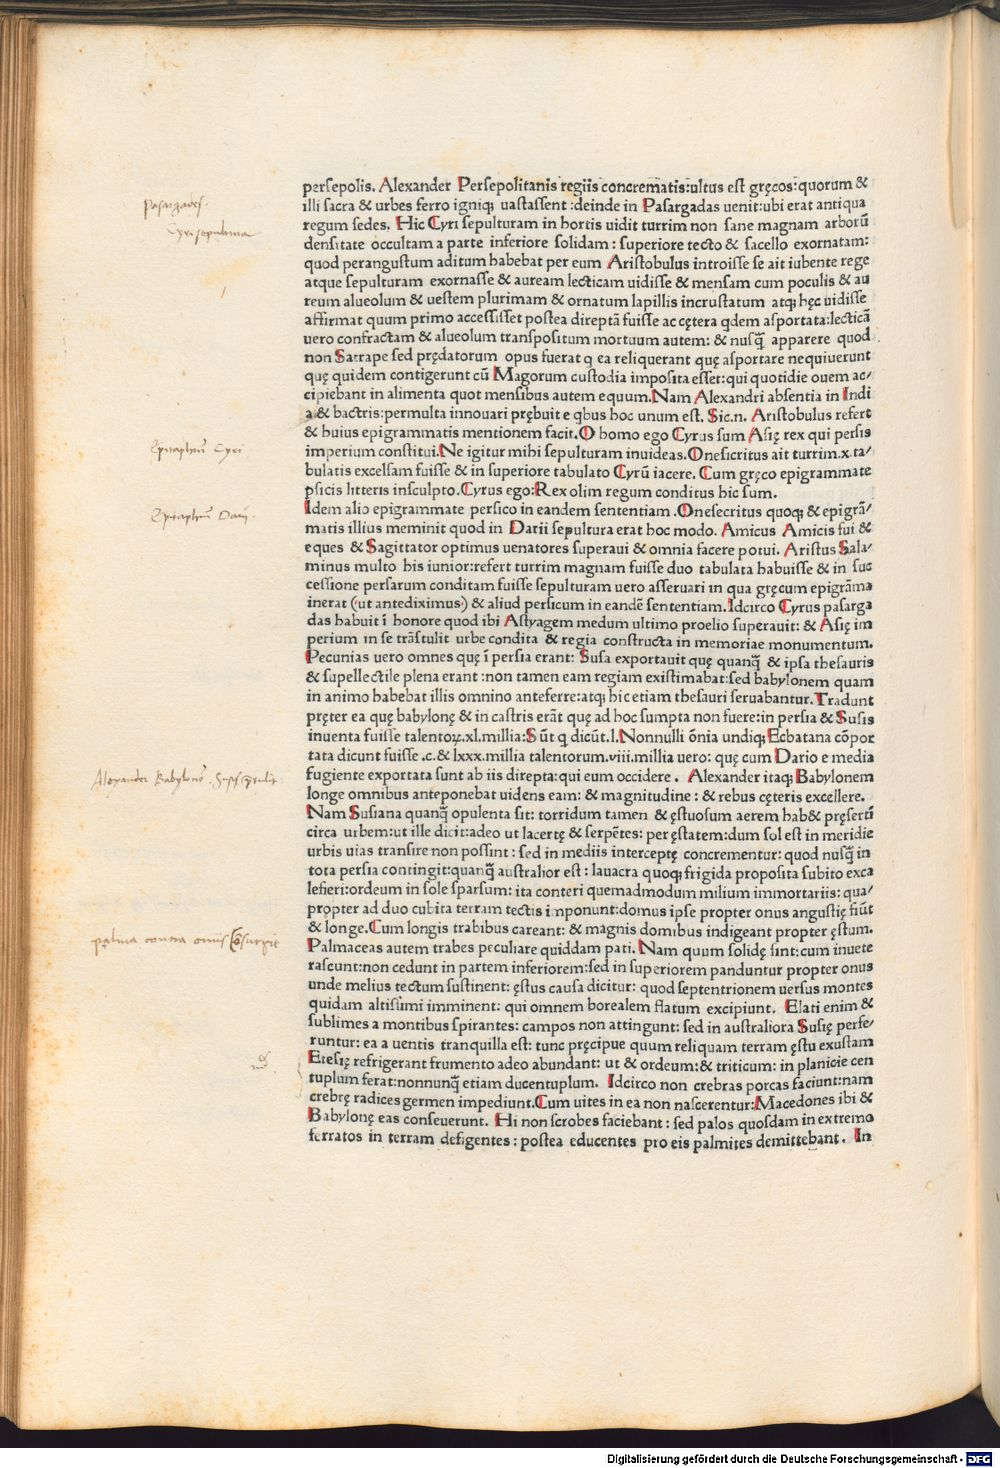 persepolis. Alexander Persepolitanis regiis concrematis:ultus est gręcos:quorum &
illi sacra & urbes ferro igniqȝ uastassent :deinde in Pasargadas uenit:ubi erat antiqua
regum sedes. Hic Cyri sepulturam in hortis uidit turrim non sane magnam arborū
densitate occultam a parte inferiore solidam : superiore tecto & sacello exornatam:
quod perangustum aditum habebat per eum Aristobulus introisse se ait iubente rege
atque sepulturam exornasse & auream lecticam uidisse & mensam cum poculis & au
reum alueolum & uestem plurimam & ornatum lapillis incrustatum atqȝ hęc uidisse
affirmat quum primo accessisset postea direptā fuisse ac cętera qdem asportata:lecticā
uero confractam & alueolum transpositum mortuum autem: & nusq̄ apparere quod
non Satrape sed prędatorum opus fuerat q ea reliquerant quę asportare nequiuerunt
quę quidem contigerunt cū Magorum custodia imposita esset:qui quotidie ouem ac/
cipiebant in alimenta quot mensibus autem equum.Nam Alexandri absentia in Indi
a & bactris:permulta innouari prębuit e qbus hoc unum est. Sic.n. Aristobulus refert
& huius epigrammatis mentionem facit.O homo ego Cyrus sum Asię rex qui persis
imperium constitui.Ne igitur mihi sepulturam inuideas.Onesicritus ait turrim.x.ta/
bulatis excelsam fuisse & in superiore tabulato Cyrū iacere. Cum gręco epigrammate
psicis litteris insculpto.Cyrus ego:Rex olim regum conditus hic sum.
Idem alio epigrammate persico in eandem sententiam .Onesecritus quoqȝ & epigrā/
matis illius meminit quod in Darii sepultura erat hoc modo. Amicus Amicis fui &
eques & Sagittator optimus uenatores superaui & omnia facere potui. Aristus Sala/
minus multo his iunior:refert turrim magnam fuisse duo tabulata habuisse & in suc
cessione persarum conditam fuisse sepulturam uero asseruari in qua gręcum epigrāma
inerat (ut antediximus) & aliud persicum in eandē sententiam.Idcirco Cyrus pasarga
das habuit ī honore quod ibi Astyagem medum ultimo proelio superauit: & Asię im
perium in se trāstulit urbe condita & regia constructa in memoriae monumentum.
Pecunias uero omnes quę ī persia erant: Susa exportauit quę quanq̄ & ipsa thesauris
& supellectile plena erant :non tamen eam regiam existimabat:sed babylonem quam
in animo habebat illis omnino anteferre:atqȝ hic etiam thesauri seruabantur.Tradunt
pręter ea quę babylonę & in castris erāt quę ad hoc sumpta non fuere:in persia & Susis
inuenta fuisse talentoꝝ.xl.millia:Sūt q dicūt.l.Nonnulli ōnia undiqȝ Ecbatana cōpor
tata dicunt fuisse .c.& lxxx.millia talentorum.viii.millia uero: quę cum Dario e media
fugiente exportata sunt ab iis direpta:qui eum occidere . Alexander itaqȝ Babylonem
longe omnibus anteponebat uidens eam: & magnitudine : & rebus cęteris excellere.
Nam Susiana quanq̄ opulenta sit: torridum tamen & ęstuosum aerem hab& pręsertī
circa urbem:ut ille dicit:adeo ut lacertę & serpētes: per ęstatem:dum sol est in meridie
urbis uias transire non possint : sed in mediis interceptę concrementur: quod nusq̄ in
tota persia contingit:quanq̄ australior est : lauacra quoqȝ frigida proposita subito exca
lefieri:ordeum in sole sparsum: ita conteri quemadmodum milium immortariis: qua/
propter ad duo cubita terram tectis imponunt:domus ipse propter onus angustię fiūt
& longe.Cum longis trabibus careant: & magnis domibus indigeant propter ęstum.
Palmaceas autem trabes peculiare quiddam pati. Nam quum solidę sint:cum inuete
rascunt:non cedunt in partem inferiorem:sed in superiorem panduntur propter onus
unde melius tectum sustinent: ęstus causa dicitur: quod septentrionem uersus montes
quidam altissimi imminent: qui omnem borealem flatum excipiunt. Elati enim &
sublimes a montibus spirantes: campos non attingunt: sed in australiora Susię perfe/
runtur: ea a uentis tranquilla est: tunc pręcipue quum reliquam terram ęstu exustam
Etesię refrigerant frumento adeo abundant: ut & ordeum:& triticum: in planicie cen
tuplum ferat:nonnunq̄ etiam ducentuplum. Idcirco non crebras porcas faciunt:nam
crebrę radices germen impediunt.Cum uites in ea non nascerentur:Macedones ibi &
Babylonę eas conseuerunt. Hi non scrobes faciebant : sed palos quosdam in extremo
ferratos in terram defigentes : postea educentes pro eis palmites demittebant. In
pasargades.
Cyri sepultura
Epitaphiū Cyri
Epitaphiū Darij.
Alexander Babylonē
palma contra onus
Digitalisierung gefördert durch die Deutsche Forschungsgemeinschaft - DFG